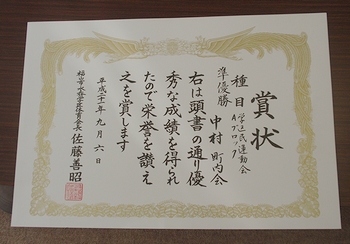 賞状
種目 学区民運動会
Aブロック
準優勝 中村 町内会
右は頭書の通り優
秀な成績を得られ
たので栄誉を讃え
之を賞します
平成二十一年九月六日
体育会長 佐藤善昭